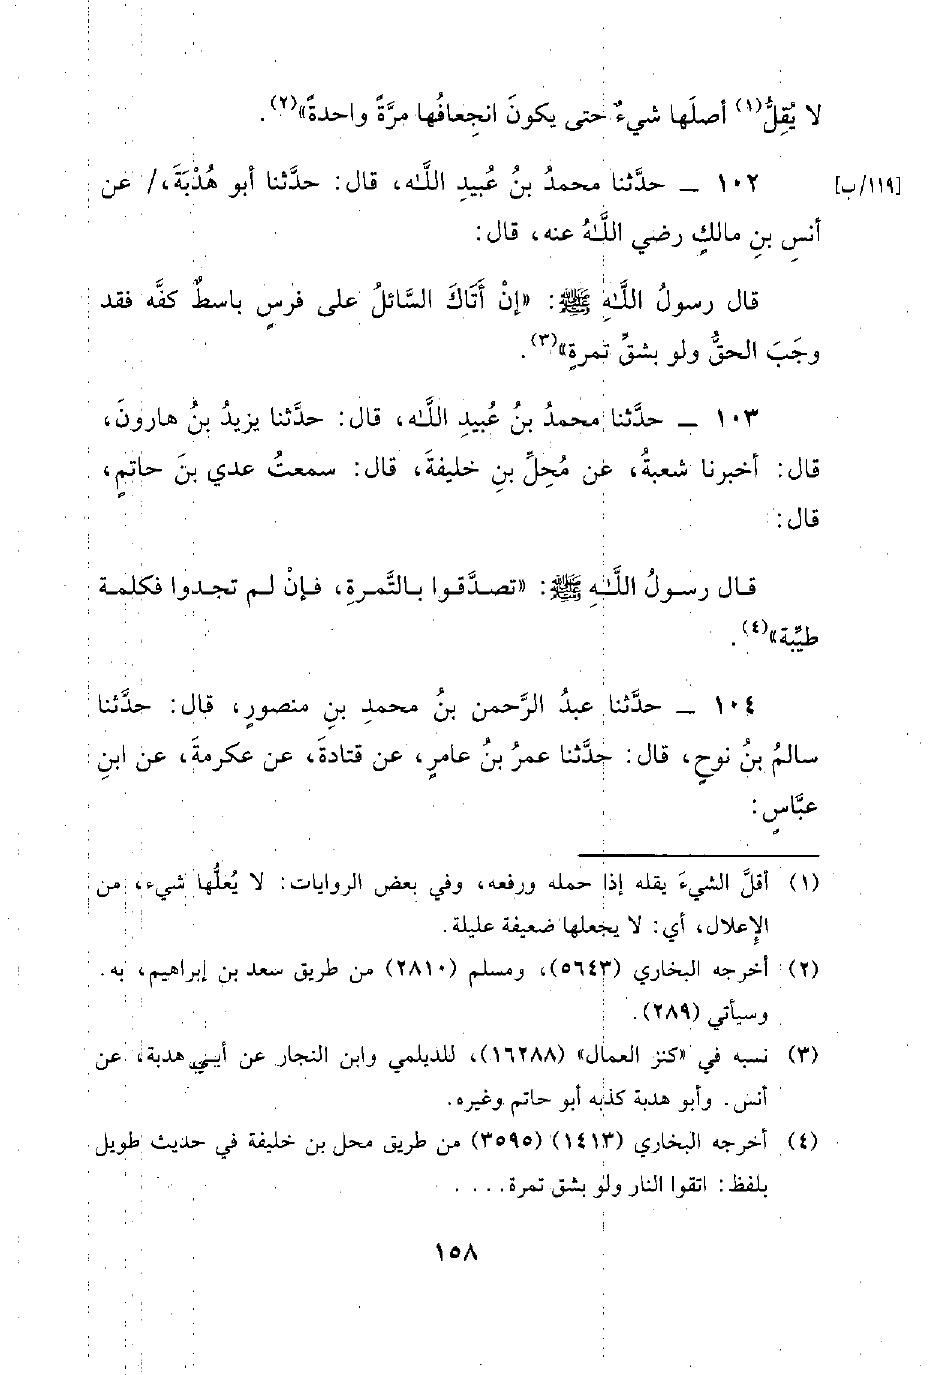 لا يُقِلُّ(١) أصلَها شيءٌ حتى يكونَ انجعافُها مرَّةً واحدةً»(٢).
[١١٩/ب] ١٠٢ ـ حدَّثنا محمدُ بنُ عُبيدِ اللَّه، قال: حدَّثنا أبو هُدْبَةَ،/ عن
أنسِ بنِ مالكٍ رضي اللَّهُ عنه، قال:
قال رسولُ اللَّهِ ﷺ: «إنْ أَتَاكَ السَّائلُ على فرسٍ باسطٌ كفَّه فقد
وجَبَ الحقُّ ولو بشقِّ تمرةٍ»(٣).
١٠٣ ـ حدَّثنا محمدُ بنُ عُبيدِ اللَّه، قال: حدَّثنا يزيدُ بنُ هارونَ،
قال: أخبرنا شعبةُ، عن مُحِلِّ بنِ خليفةَ، قال: سمعتُ عدي بنَ حاتمٍ،
قال:
قال رسولُ اللَّهِ ﷺ: «تصدَّقوا بالتَّمرةِ، فإنْ لم تجدوا فكلمة
طيِّبة»(٤).
١٠٤ ـ حدَّثنا عبدُ الرَّحمن بنُ محمدِ بنِ منصورٍ، قال: حدَّثنا
سالمُ بنُ نوحٍ، قال: حدَّثنا عمرُ بنُ عامرٍ، عن قتادةَ، عن عكرمةَ، عن ابنِ
عبَّاسٍ:
(١) أقلَّ الشيءَ يقله إذا حمله ورفعه، وفي بعض الروايات: لا يُعلُّها شيء، من
الإعلال، أي: لا يجعلها ضعيفة عليلة.
(٢) أخرجه البخاري (٥٦٤٣)، ومسلم (٢٨١٠) من طريق سعد بن إبراهيم، به.
وسيأتي (٢٨٩).
(٣) نسبه في «كنز العمال» (١٦٢٨٨)، للديلمي وابن النجار عن أبي هدبة، عن
أنس. وأبو هدبة كذبه أبو حاتم وغيره.
(٤) أخرجه البخاري (١٤١٣) (٣٥٩٥) من طريق محل بن خليفة في حديث طويل
بلفظ: اتقوا النار ولو بشق تمرة....
١٥٨